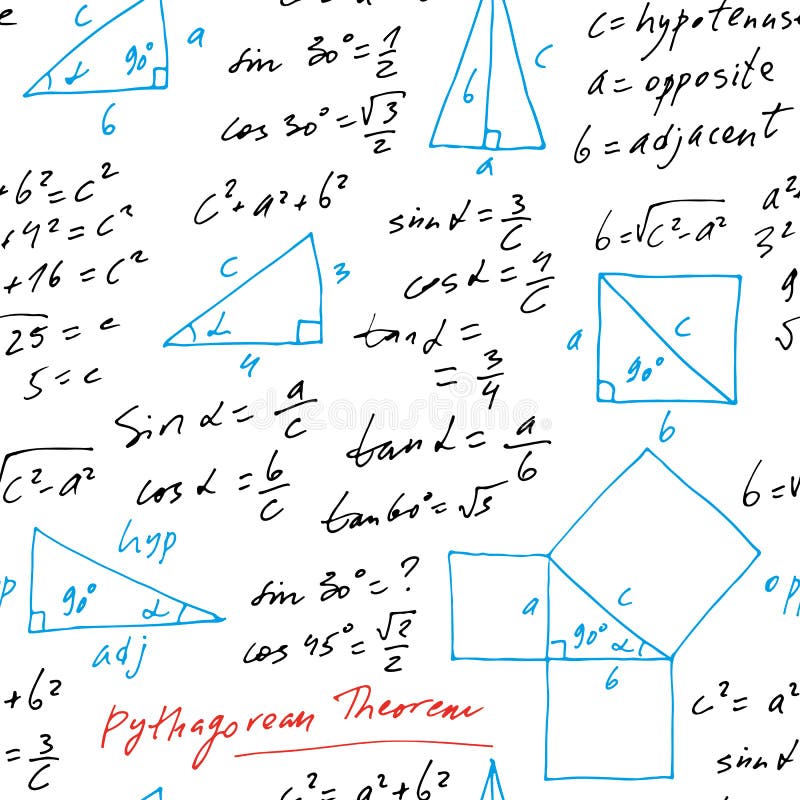 c
a
90° α
6
sin 30° = 1/2
cos 30° = √3/2
c
6
a
c = hypotenuse
a = opposite
6 = adjacent
+6² = c²
+4² = c²
+16 = c²
√25 = e
5 = c
c² + a² + 6²
c
3
α
4
sin α = 3/c
cos α = 4/c
tan α =
= 3/4
6 = √c² - a²
a² +
3²
9
√
a
c
90°
6
sin α = a/c
cos α = 6/c
tan α = a/6
tan 60° = √3
√c² - a²
6 = √
hyp
90° α
adj
sin 30° = ?
cos 45° = √2/2
a
c
90° α
6
op
+6²
= 3/c
Pythagorean Theorem
c² = a²
sin α
c² = a² + 6²